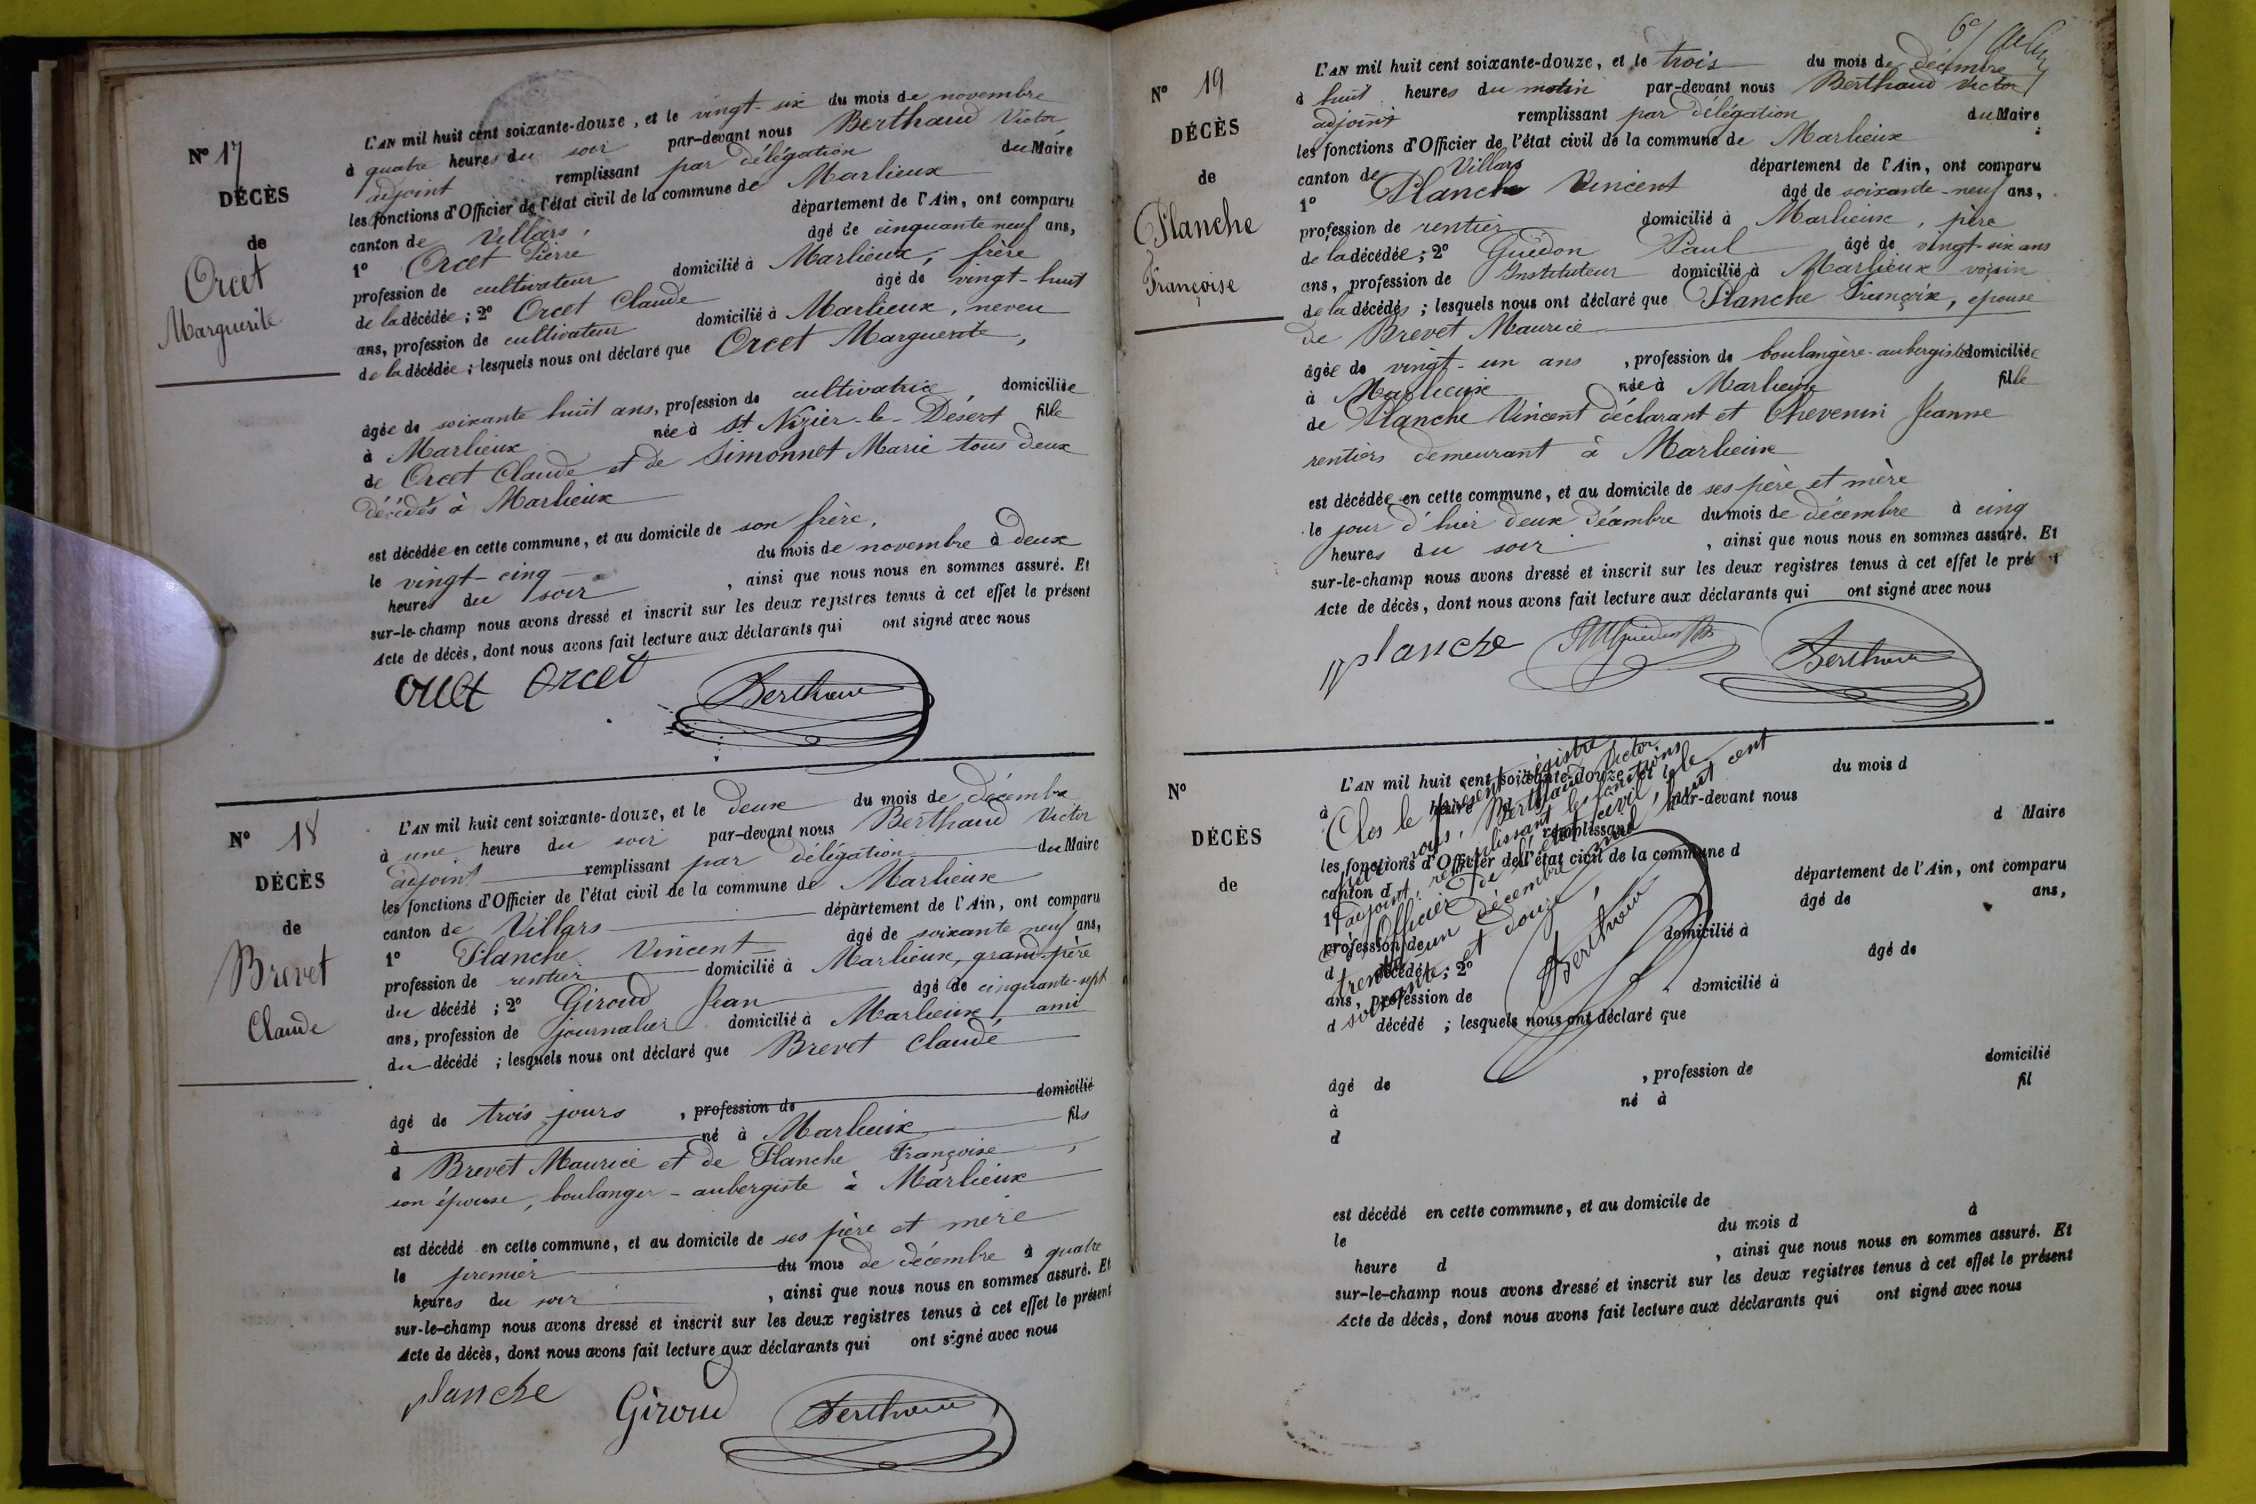 N° 17
DÉCÈS
de
Orcet
Marguerite
L'AN mil huit cent soixante-douze, et le vingt-six du mois de novembre
à quatre heures du soir par-devant nous Berthaud Victor
adjoint remplissant par délégation du Maire
les fonctions d'Officier de l'état civil de la commune de Marlieux
canton de Villars, département de l'Ain, ont comparu
1° Orcet Pierre âgé de cinquante neuf ans,
profession de cultivateur domicilié à Marlieux, frère
de la décédée ; 2° Orcet Claude âgé de vingt-huit
ans, profession de cultivateur domicilié à Marlieux, neveu
de la décédée ; lesquels nous ont déclaré que Orcet Marguerite,
âgée de soixante huit ans, profession de cultivatrice domiciliée
à Marlieux née à St Nizier-le-Désert fille
de Orcet Claude et de Simonnet Marie tous deux
décédés à Marlieux
est décédée en cette commune, et au domicile de son frère,
le vingt-cinq du mois de novembre à deux
heures du soir, ainsi que nous nous en sommes assuré. Et
sur-le-champ nous avons dressé et inscrit sur les deux registres tenus à cet effet le présent
Acte de décès, dont nous avons fait lecture aux déclarants qui ont signé avec nous
Orcet Berthaud
N° 18
DÉCÈS
de
Brevet
Claude
L'AN mil huit cent soixante-douze, et le deux du mois de décembre
à une heure du soir par-devant nous Berthaud Victor
adjoint remplissant par délégation du Maire
les fonctions d'Officier de l'état civil de la commune de Marlieux
canton de Villars département de l'Ain, ont comparu
1° Planche Vincent âgé de soixante neuf ans,
profession de rentier domicilié à Marlieux, grand-père
du décédé ; 2° Giroud Jean âgé de cinquante-sept
ans, profession de journalier domicilié à Marlieux, ami
du décédé ; lesquels nous ont déclaré que Brevet Claude
âgé de trois jours, profession de domicilié
à né à Marlieux fils
d Brevet Maurice et de Planche Françoise,
son épouse, boulanger-aubergiste à Marlieux
est décédé en cette commune, et au domicile de ses père et mère
le premier du mois de décembre à quatre
heures du soir, ainsi que nous nous en sommes assuré. Et
sur-le-champ nous avons dressé et inscrit sur les deux registres tenus à cet effet le présent
Acte de décès, dont nous avons fait lecture aux déclarants qui ont signé avec nous
planche Giroud Berthaud
N° 19
DÉCÈS
de
Planche
Françoise
L'AN mil huit cent soixante-douze, et le trois du mois de décembre
à huit heures du matin par-devant nous Berthaud Victor
adjoint remplissant par délégation du Maire
les fonctions d'Officier de l'état civil de la commune de Marlieux
canton de Villars département de l'Ain, ont comparu
1° Planche Vincent âgé de soixante-neuf ans,
profession de rentier domicilié à Marlieux, père
de la décédée ; 2° Guédon Paul âgé de vingt-six ans
ans, profession de Instituteur domicilié à Marlieux voisin
de la décédés ; lesquels nous ont déclaré que Planche Françoise, épouse
de Brevet Maurice
âgée de vingt-un ans, profession de boulangère-aubergiste domiciliée
à Marlieux née à Marlieux fille
de Planche Vincent déclarant et Chevenin Jeanne
rentiers demeurant à Marlieux
est décédée en cette commune, et au domicile de ses père et mère
le jour d'hier deux décembre du mois de décembre à cinq
heures du soir, ainsi que nous nous en sommes assuré. Et
sur-le-champ nous avons dressé et inscrit sur les deux registres tenus à cet effet le présent
Acte de décès, dont nous avons fait lecture aux déclarants qui ont signé avec nous
planche Berthaud
N°
DÉCÈS
de
L'AN mil huit cent soixante-douze, et le du mois d
à heure d par-devant nous
remplissant d Maire
les fonctions d'Officier de l'état civil de la commune d
canton d département de l'Ain, ont comparu
1° âgé de ans,
profession de domicilié à
d décédé ; 2° âgé de
ans, profession de domicilié à
d décédé ; lesquels nous ont déclaré que
âgé de , profession de domicilié
à né à fil
d
est décédé en cette commune, et au domicile de
le du mois d à
heure d , ainsi que nous nous en sommes assuré. Et
sur-le-champ nous avons dressé et inscrit sur les deux registres tenus à cet effet le présent
Acte de décès, dont nous avons fait lecture aux déclarants qui ont signé avec nous
Clos le présent régistre
nous, Berthaud Victor
adjoint, remplissant les fonctions
d'Officier de l'état civil, le
trente un décembre mil huit cent
soixante et douze,
Berthaud